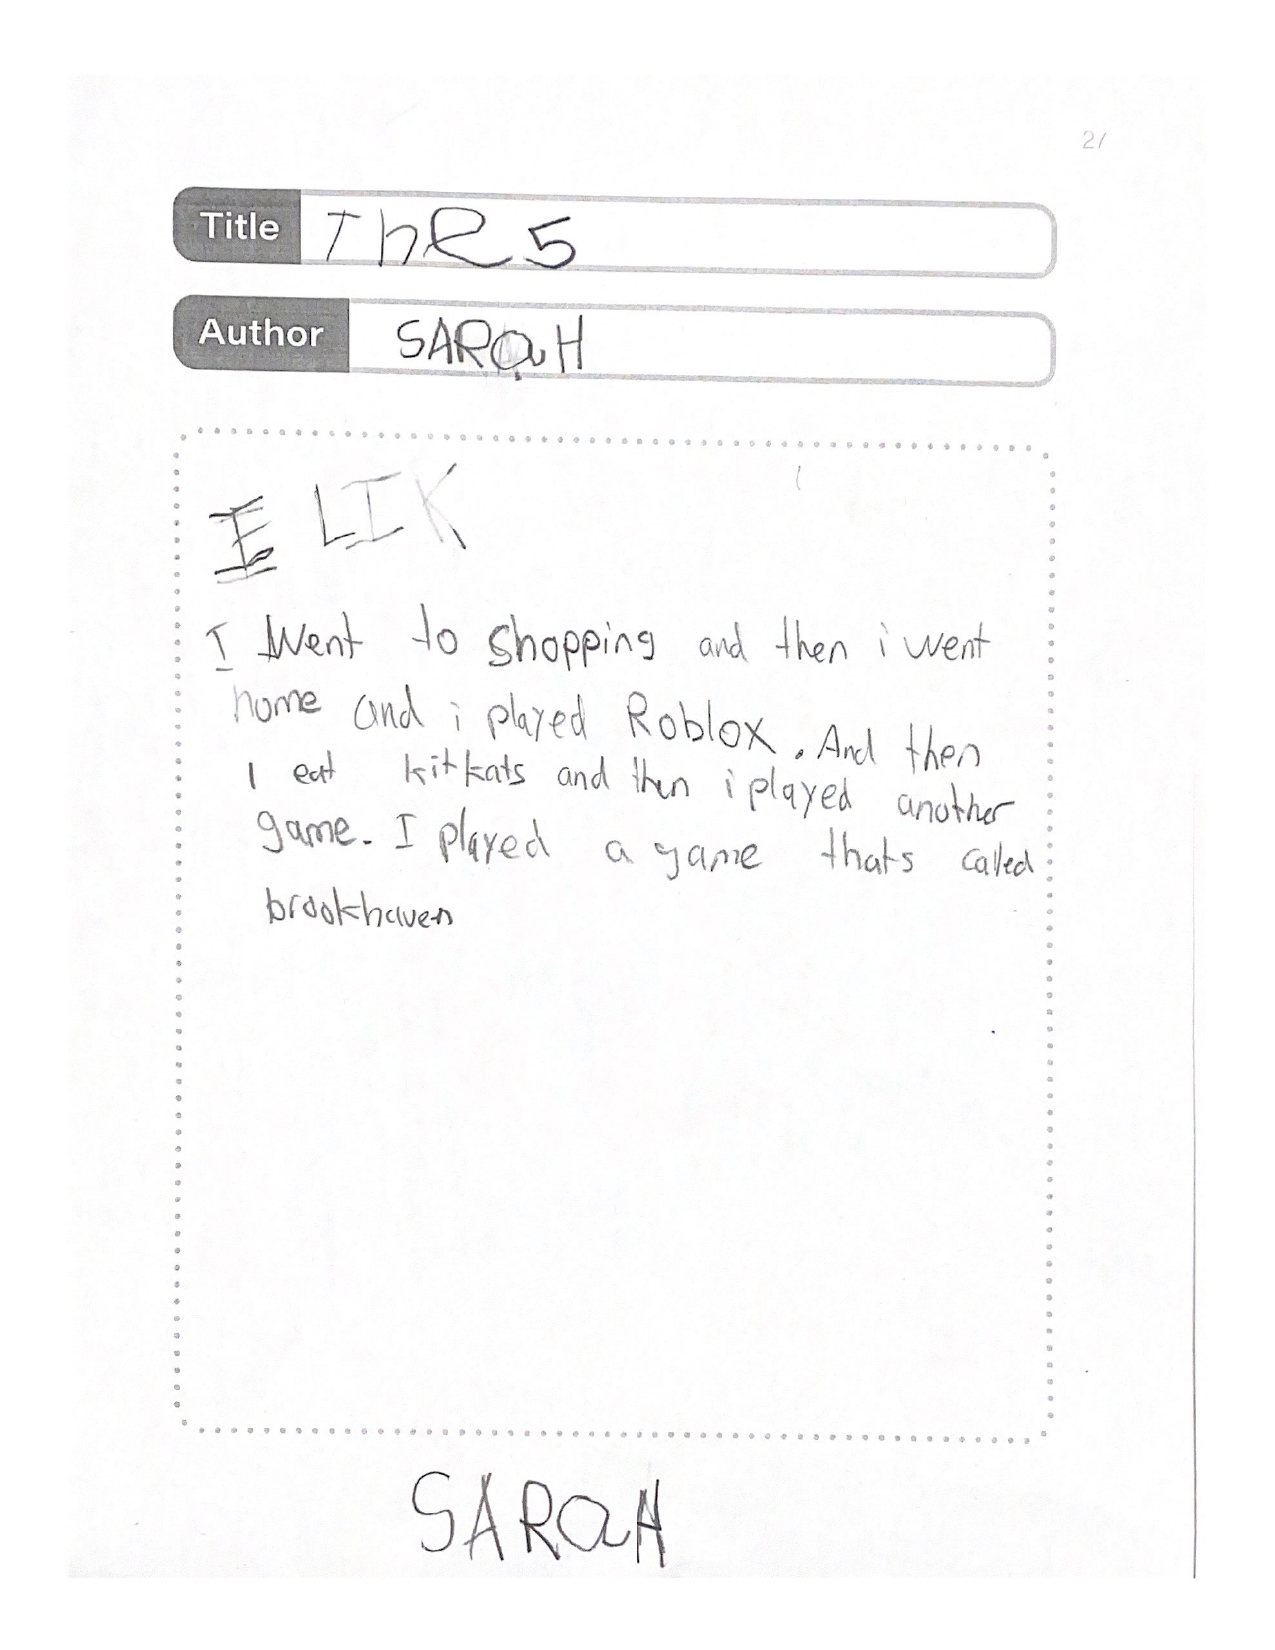 21
Title ThE 5
Author SARaH
I LIK
I Went to shopping and then i went
home and i played Roblox. And then
I eat kitkats and then i played another
game. I played a game thats called
brookhaven
SARaH